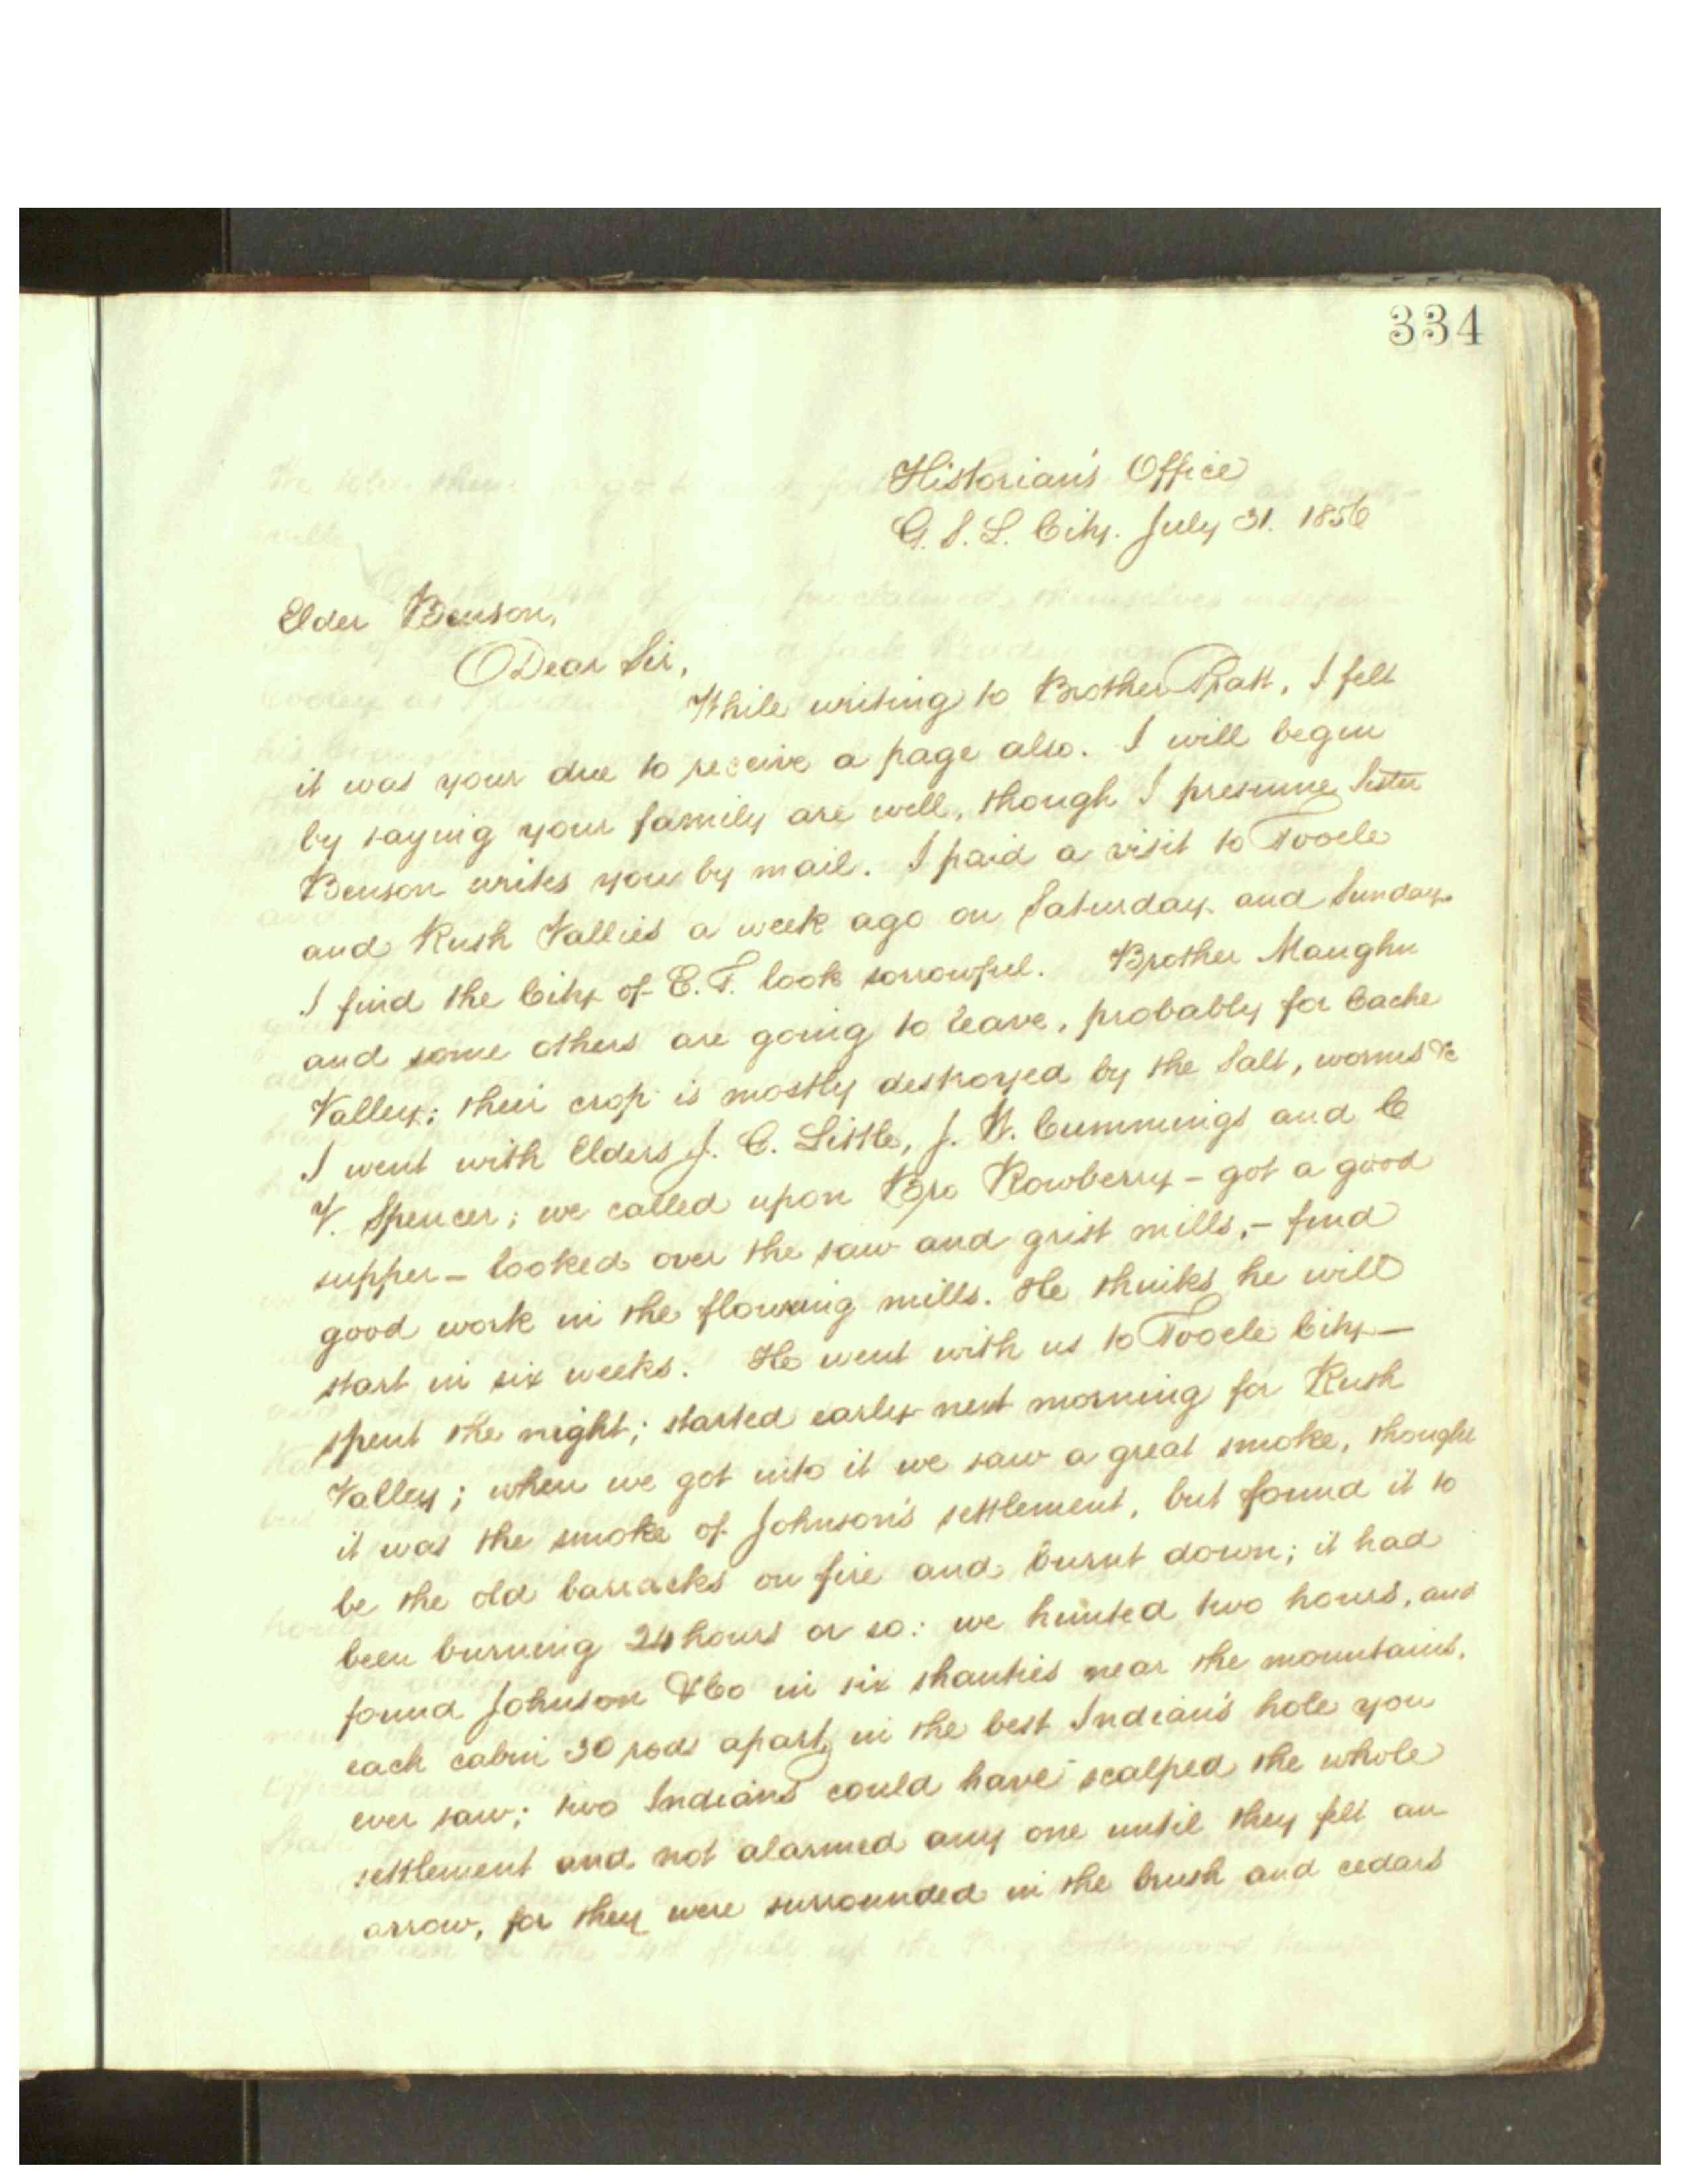 334
Historian's Office
G. S. L. City. July 31. 1856
Elder Benson,
Dear Sir,
While writing to Brother Pratt, I felt
it was your due to receive a page also. I will begin
by saying your family are well, though I presume Sister
Benson writes you by mail. I paid a visit to Tooele
and Rush Vallies a week ago on Saturday and Sunday.
I find the City of E. T. look sorrowful. Brother Maughn
and some others are going to leave, probably for Cache
Valley; their crop is mostly destroyed by the Salt, worms &c
I went with Elders J. C. Little, J. W. Cummings and C
V. Spencer; we called upon Bro Rowberry – got a good
supper – looked over the saw and grist mills, – find
good work in the flowring mills. He thinks he will
start in six weeks. He went with us to Tooele City –
spent the night; started early next morning for Rush
Valley; when we got into it we saw a great smoke, thought
it was the smoke of Johnson's settlement, but found it to
be the old barracks on fire and burnt down; it had
been burning 24 hours or so: we hunted two hours, and
found Johnson & Co in six shanties near the mountains,
each cabin 30 rods apart, in the best Indian's hole you
ever saw; two Indians could have scalped the whole
settlement and not alarmed any one until they felt an
arrow, for they were surrounded in the brush and cedars